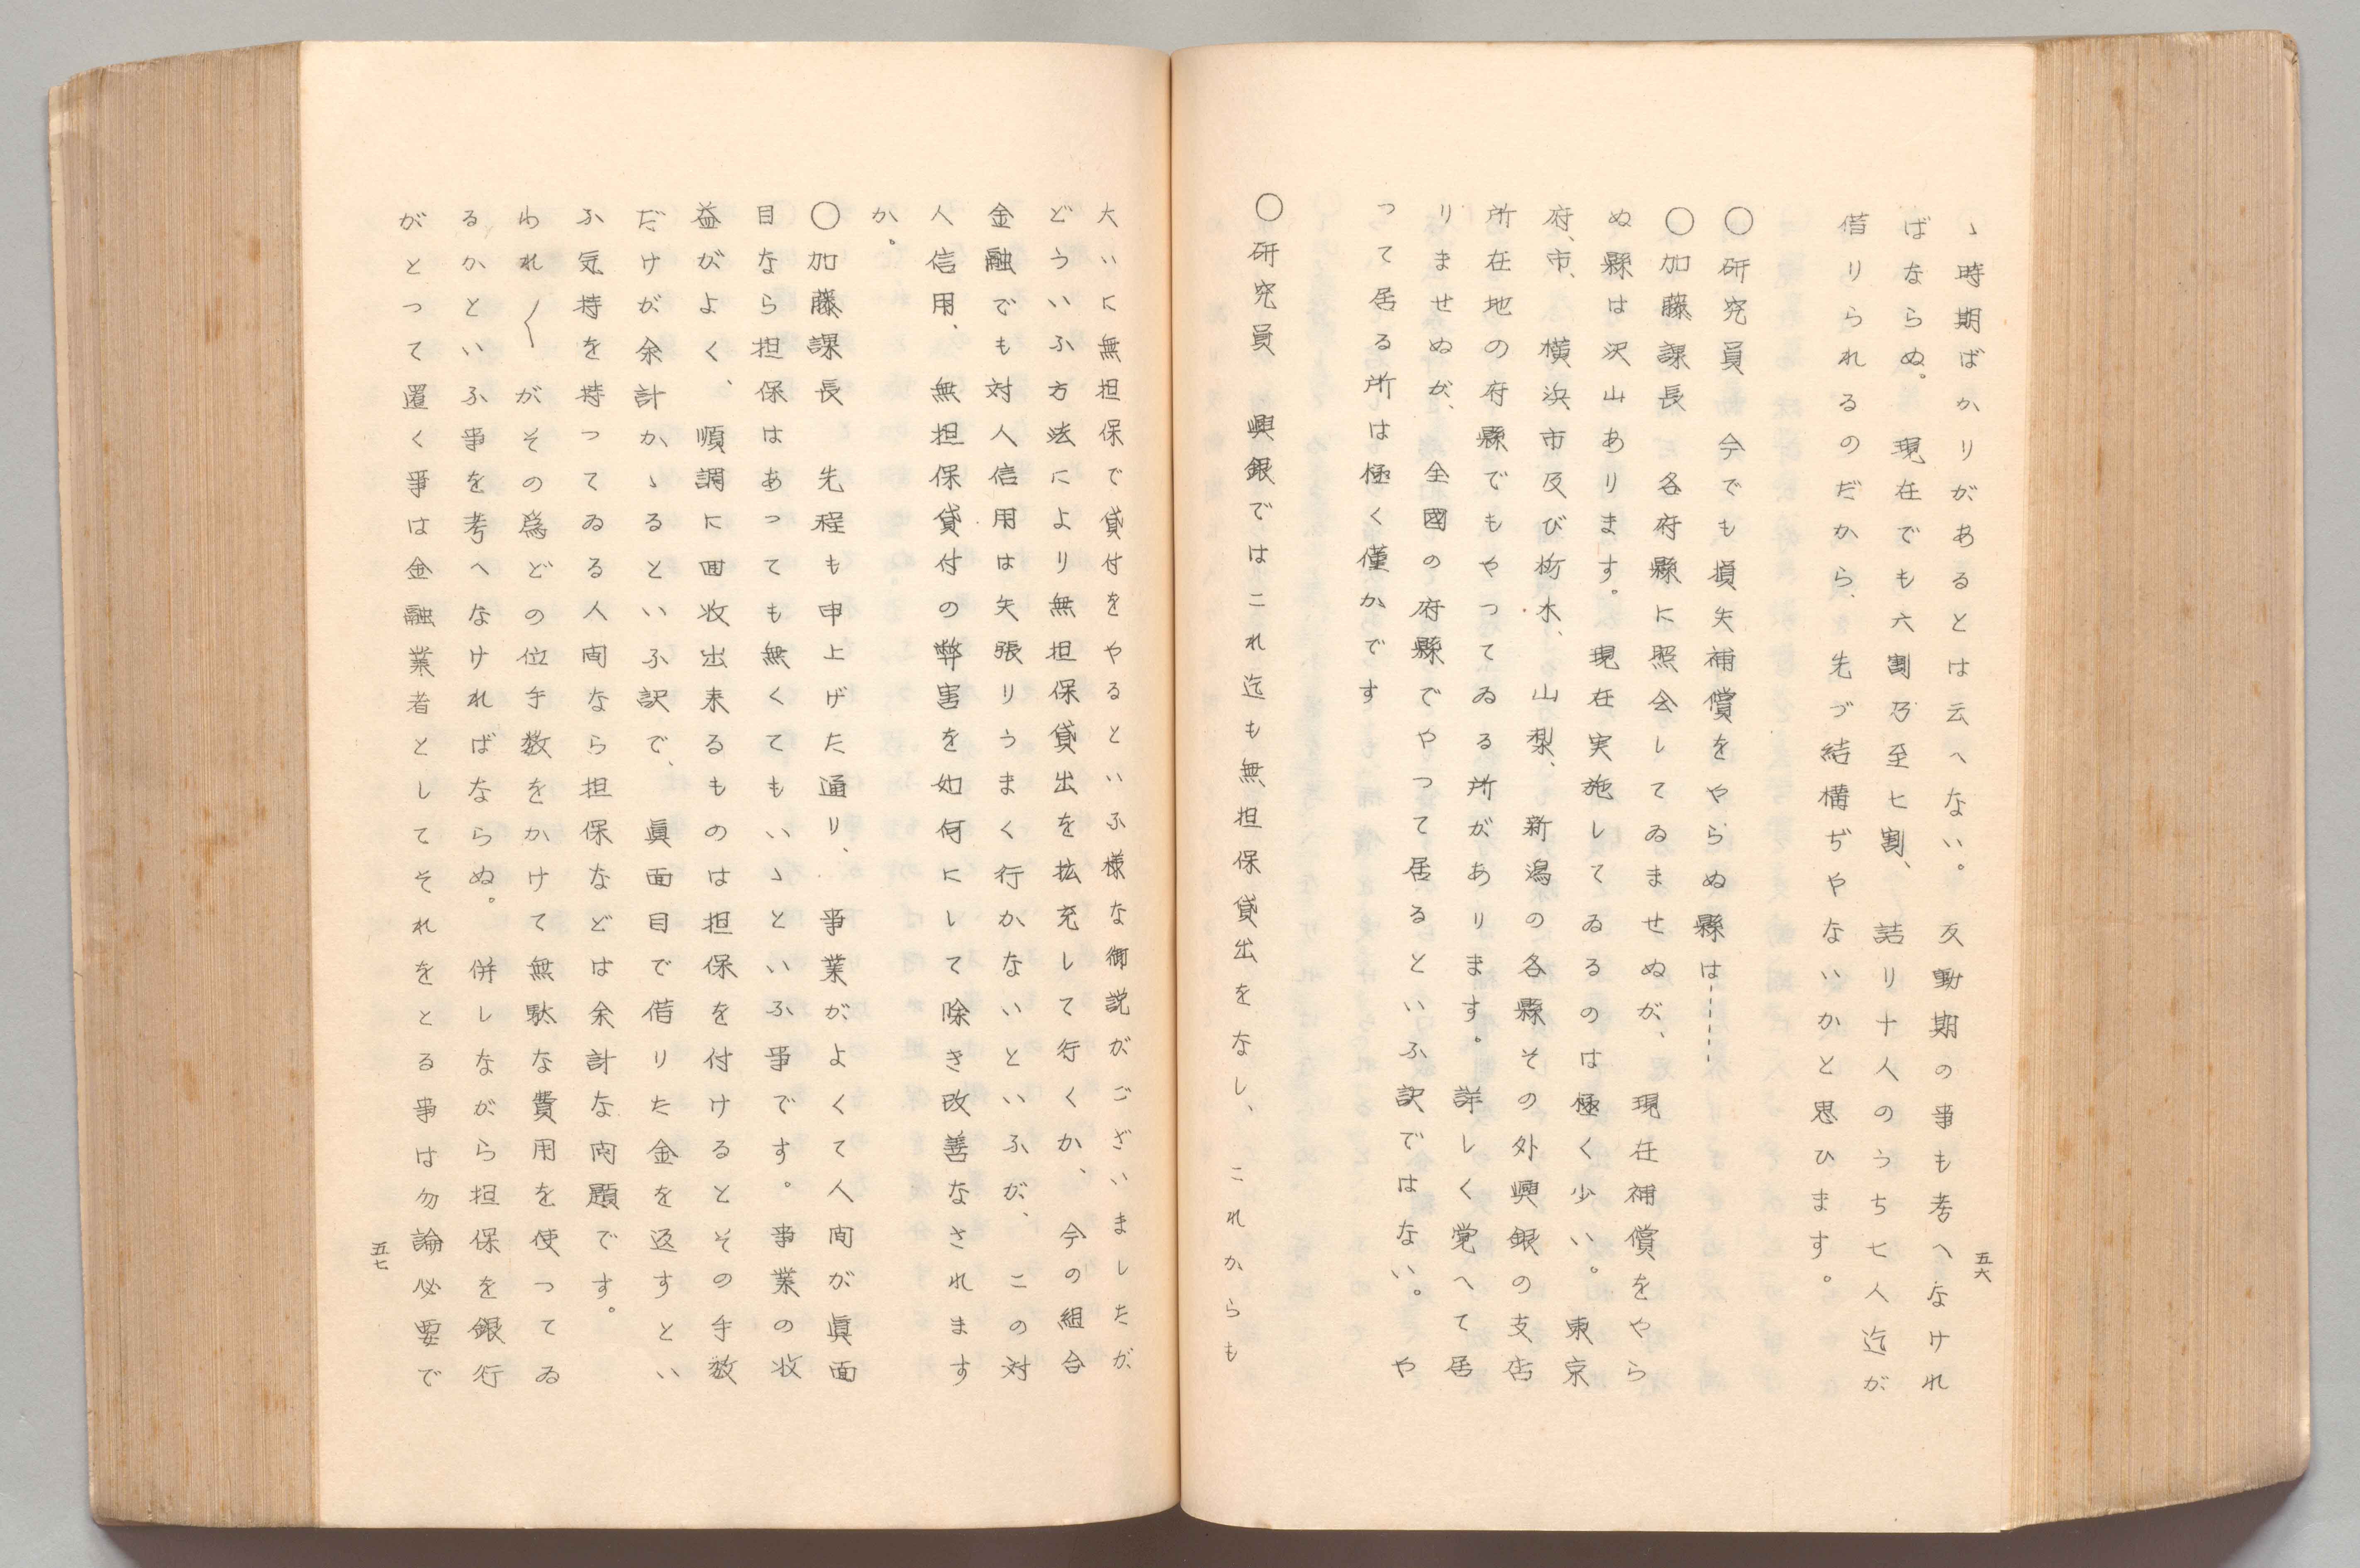 五六
ゝ時期ばかりがあるとは云へない。反動期の事も考へなけれ
ばならぬ。現在でも六割乃至七割、詰り十人のうち七人迄が
借りられるのだから、先づ結構ぢやないかと思ひます。
〇研究員　今でも損失補償をやらぬ縣は……
〇加藤課長　各府縣に照会してゐませぬが、現在補償をやら
ぬ縣は沢山あります。現在実施してゐるのは極く少い。東京
府、市、横浜市及び栃木、山梨、新潟の各縣その外興銀の支店
所在地の府縣でもやつてゐる所があります。詳しく覚へて居
りませぬが、全國の府縣でやつて居るといふ訳ではない。や
つて居る所は極く僅かです
〇研究員　興銀ではこれ迄も無担保貸出をなし、これからも
大いに無担保で貸付をやるといふ様な御説がございましたが
どういふ方法により無担保貸出を拡充して行くか、今の組合
金融でも対人信用は矢張りうまく行かないといふが、この対
人信用、無担保貸付の弊害を如何にして除き改善なされます
か。
〇加藤課長　先程も申上げた通り、事業がよくて人間が眞面
目なら担保はあつても無くてもいゝといふ事です。事業の收
益がよく、順調に回收出来るものは担保を付けるとその手数
だけが余計かゝるといふ訳で、眞面目で借りた金を返すとい
ふ気持を持つてゐる人間なら担保などは余計な問題です。
われ〱がその為どの位手数をかけて無駄な費用を使つてゐ
るかといふ事を考へなければならぬ。併しながら担保を銀行
がとつて置く事は金融業者としてそれをとる事は勿論必要で
五七